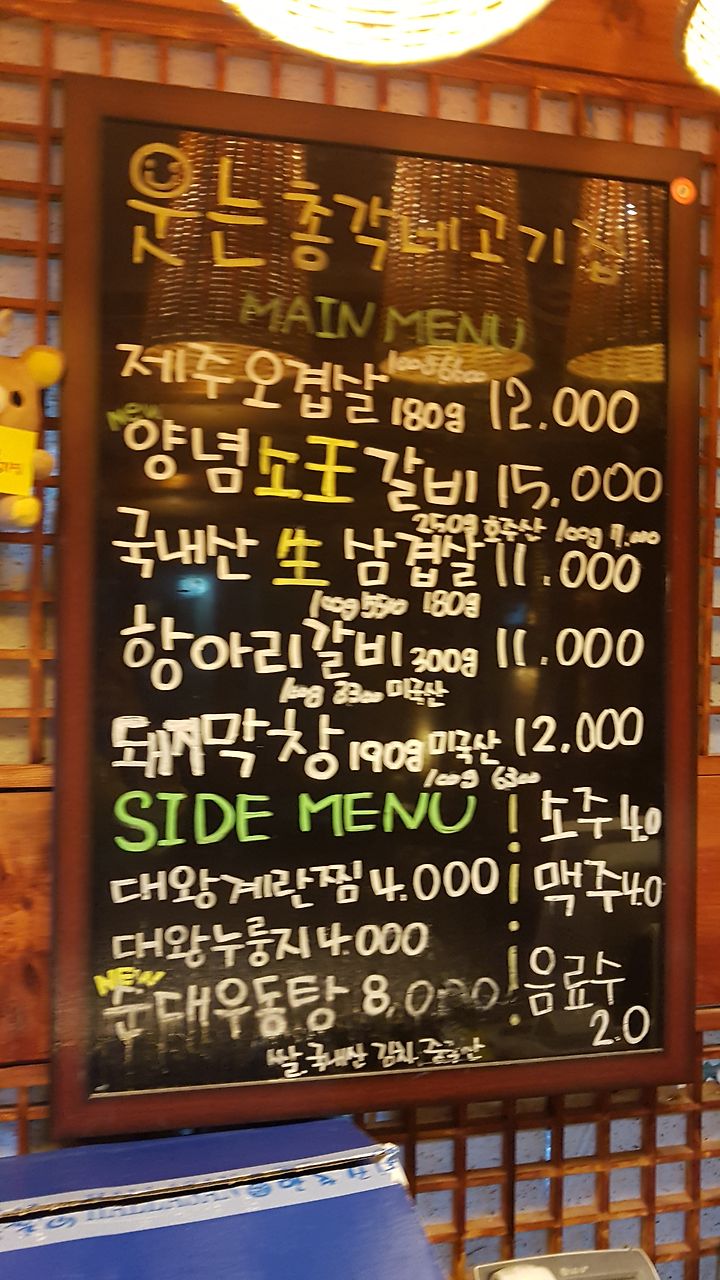 웃는 총각네 고기집
MAIN MENU
제주오겹살 180g 12.000
NEW
양념 소王 갈비 15,000
250g 호주산 100g 7.000
국내산 生 삼겹살 11.000
180g
항아리갈비 300g 11.000
100g 3300 미국산
돼지막창 190g 미국산 12.000
100g 6300
SIDE MENU
대왕계란찜 4.000
대왕누룽지 4.000
NEW
순대우동탕 8,000
소주 4.0
맥주 4.0
음료수
2.0
쌀.국내산 김치.중국산